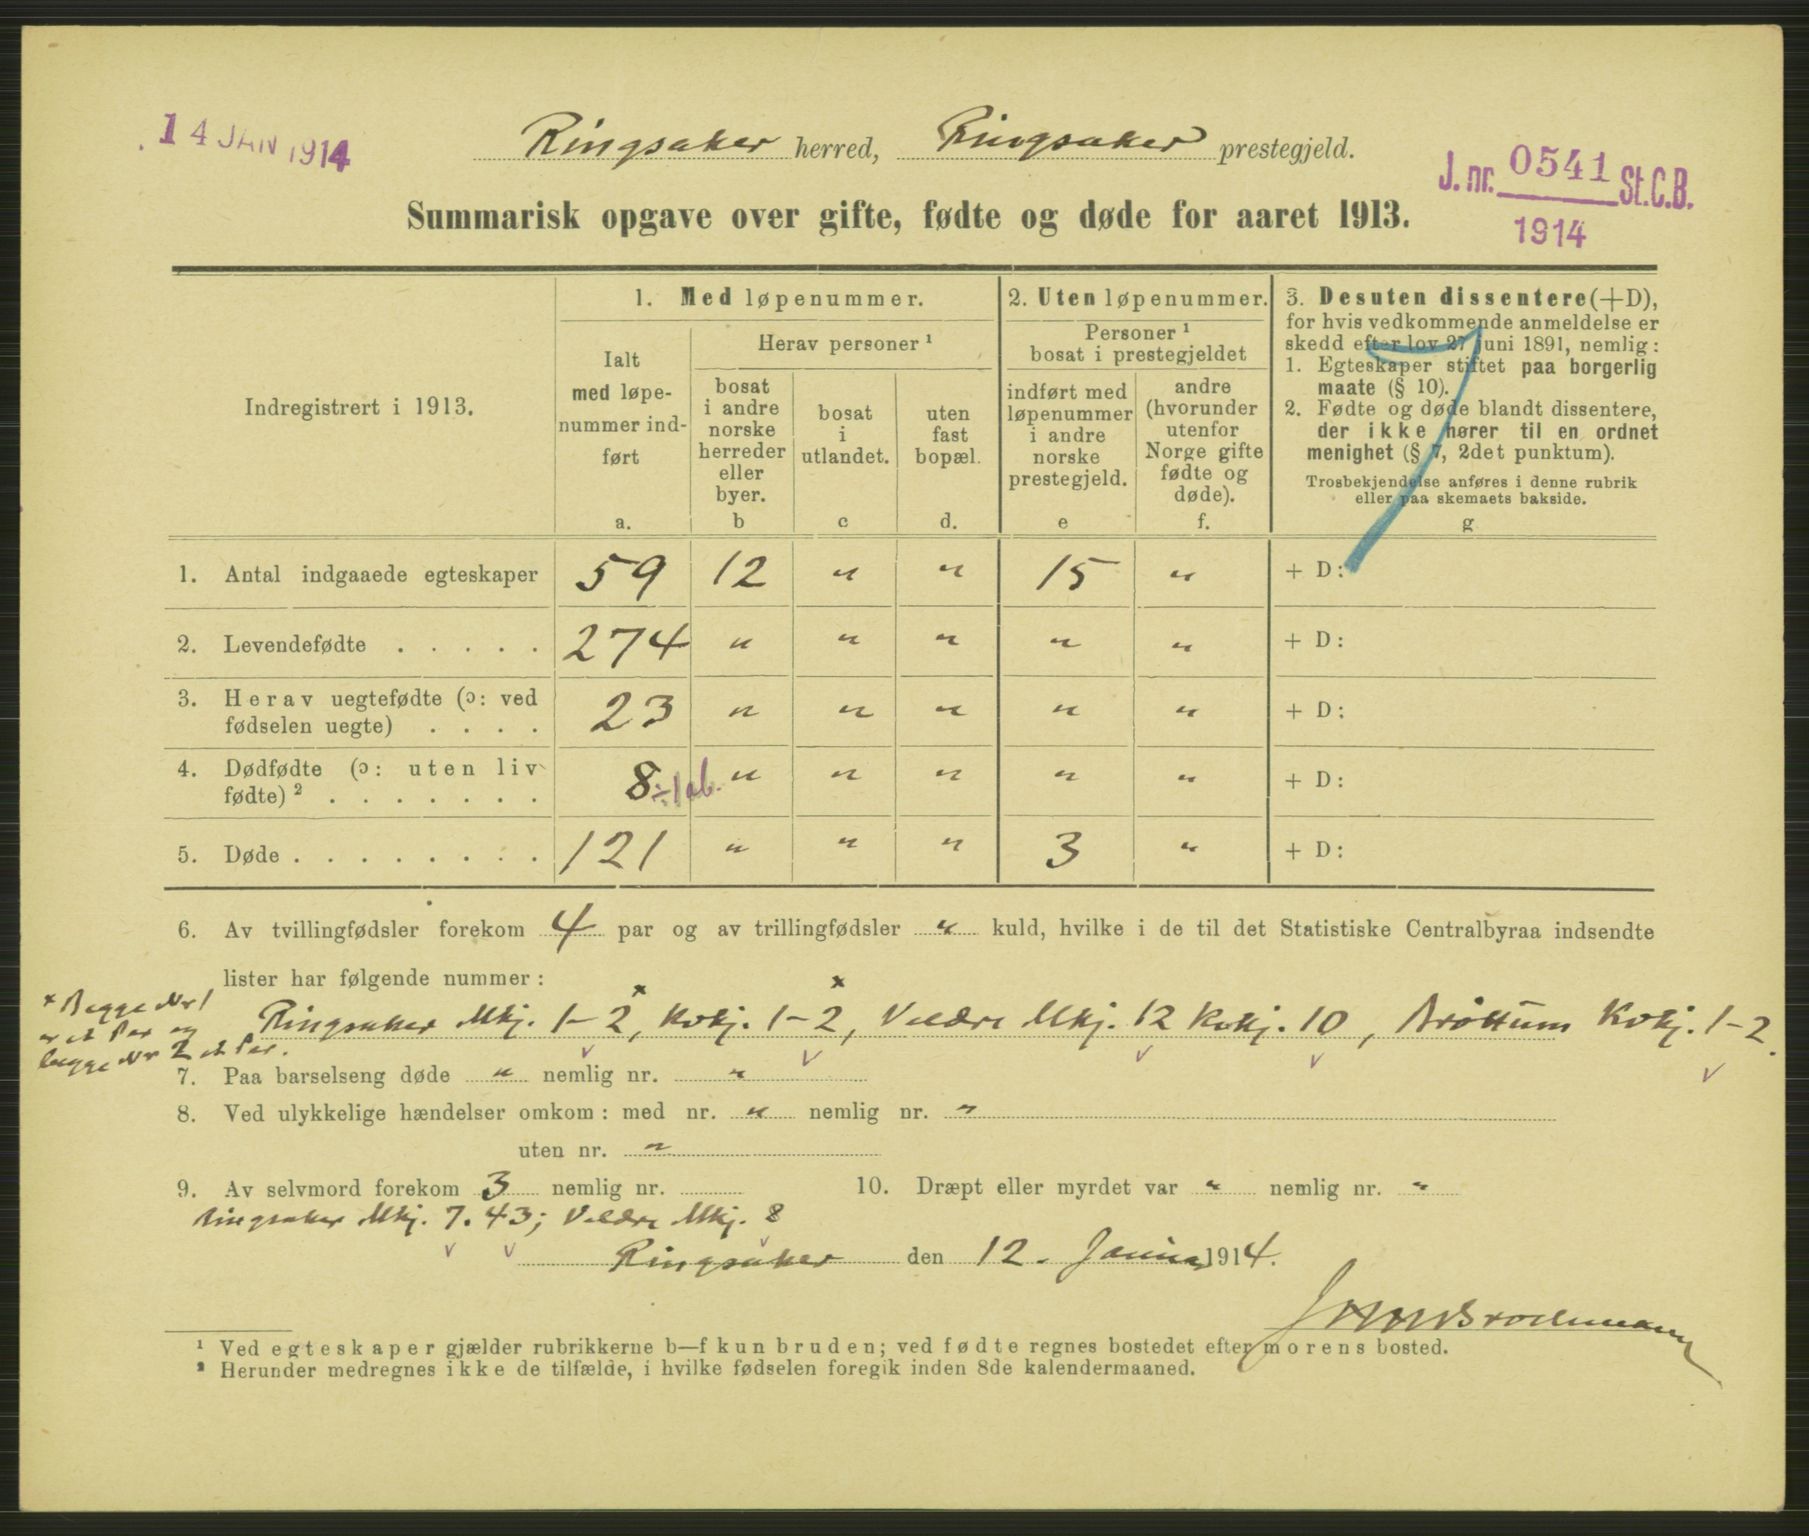 14 JAN 1914
Ringsaker herred, Ringsaker prestegjeld.
J. nr. 0541 St. C. B.
1914
Summarisk opgave over gifte, fødte og døde for aaret 1913.
Indregistrert i 1913.
1. Med løpenummer.
Ialt
med løpe-
nummer ind-
ført
a.
Herav personer ¹
bosat
i andre
norske
herreder
eller
byer.
b
bosat
i
utlandet.
c
uten
fast
bopæl.
d.
2. Uten løpenummer.
Personer ¹
bosat i prestegjeldet
indført med
løpenummer
i andre
norske
prestegjeld.
e
andre
(hvorunder
utenfor
Norge gifte
fødte og
døde).
f.
3. Desuten dissentere (+D),
for hvis vedkommende anmeldelse er
skedd efter lov 27 juni 1891, nemlig:
1. Egteskaper stiftet paa borgerlig
maate (§ 10).
2. Fødte og døde blandt dissentere,
der ikke hører til en ordnet
menighet (§ 7, 2det punktum).
Trosbekjendelse anføres i denne rubrik
eller paa skemaets bakside.
g
1. Antal indgaaede egteskaper 59 12 " " 15 " + D:
2. Levendefødte . . . . . 274 " " " " " + D:
3. Herav uegtefødte (ɔ: ved
fødselen uegte) . . . . 23 " " " " " + D:
4. Dødfødte (ɔ: uten liv
fødte) ² . . . . . . . 8 ÷1 ab. " " " " " + D:
5. Døde . . . . . . . . 121 " " " 3 " + D:
6. Av tvillingfødsler forekom 4 par og av trillingfødsler " kuld, hvilke i de til det Statistiske Centralbyraa indsendte
lister har følgende nummer:
× Begge Nr 1
er et Par og
begge Nr 2 et Par.
Ringsaker Mkj. 1-2×, Kvkj. 1-2×, Veldre Mkj. 12 Kvkj. 10, Brøttum Kvkj. 1-2.
7. Paa barselseng døde " nemlig nr. "
8. Ved ulykkelige hændelser omkom: med nr. " nemlig nr. "
uten nr. "
9. Av selvmord forekom 3 nemlig nr.
10. Dræpt eller myrdet var " nemlig nr. "
Ringsaker Mkj. 7. 43; Veldre Mkj. 8
Ringsaker den 12. Januar 1914.
¹ Ved egteskaper gjælder rubrikkerne b—f kun bruden; ved fødte regnes bostedet efter morens bosted.
² Herunder medregnes ikke de tilfælde, i hvilke fødselen foregik inden 8de kalendermaaned.